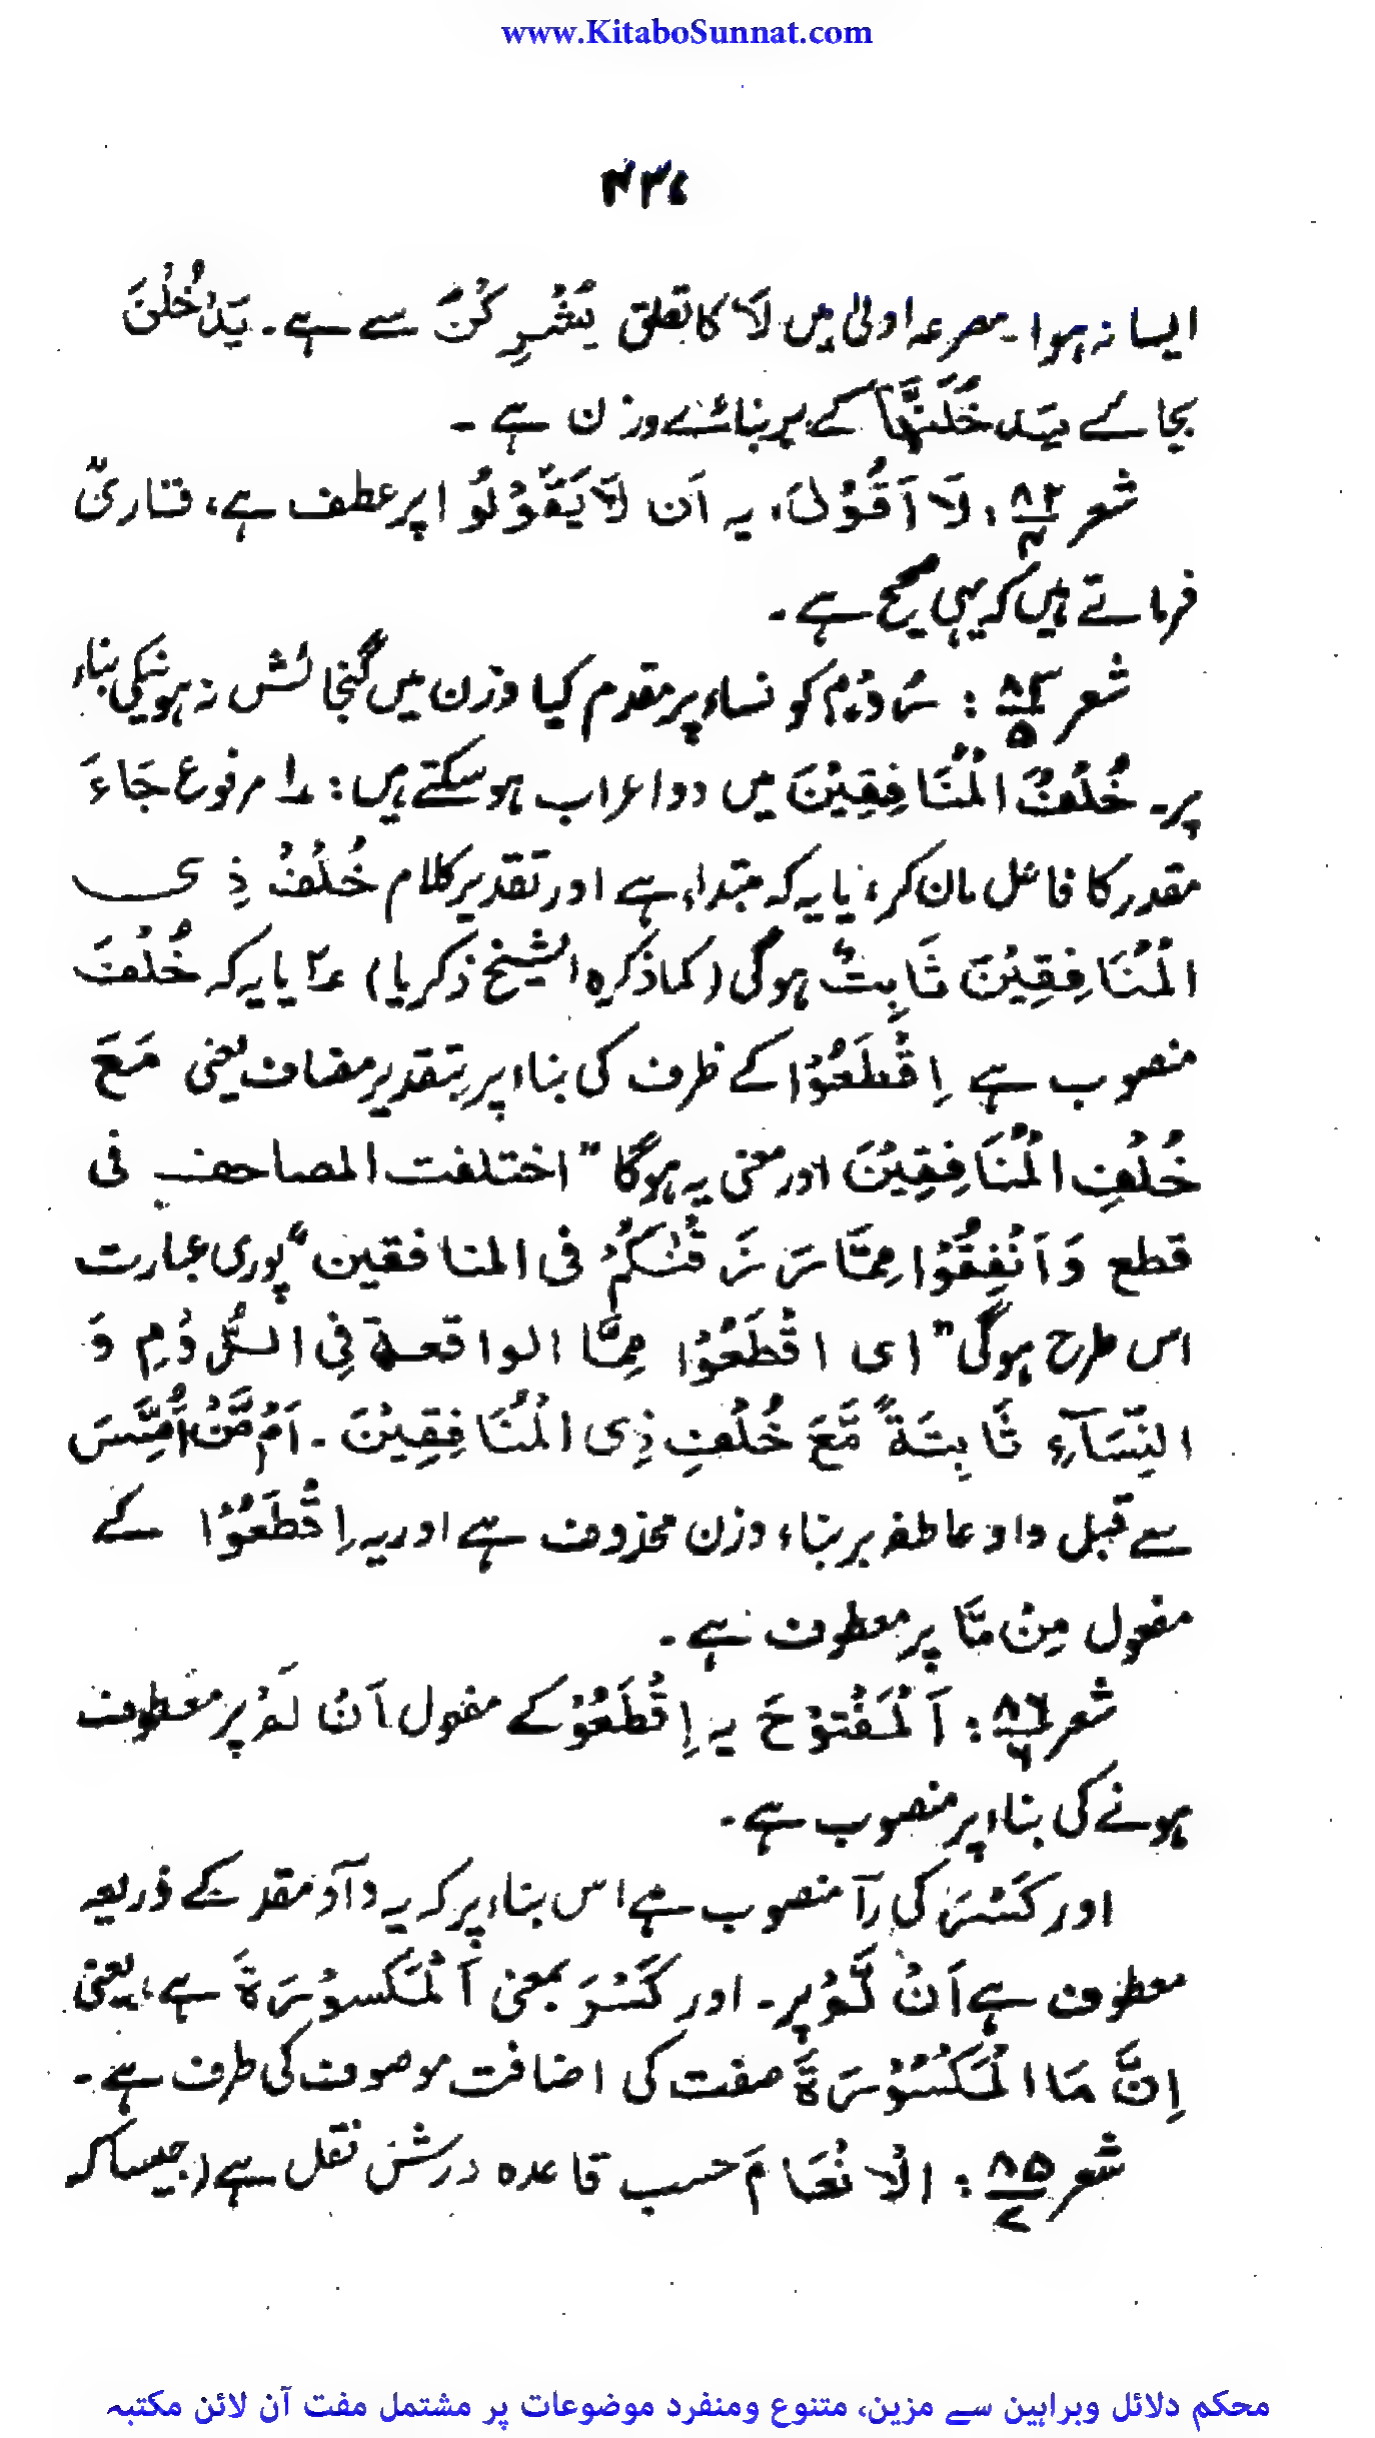 www.KitaboSunnat.com
۴۳۰
ایسا نہ ہوا۔ مصرعہ اولیٰ میں لَا کا تعلق یُشْرِکْنَ سے ہے۔ یَدْخُلْنَ
بجائے یَدْخُلَنَّهَا کے بر بنائے وزن ہے۔
شعر ۸۲/۴: لَا اَقُوْلَ، یہ اَن لَّا یَقُوْلُوا پر عطف ہے، قاریؒ
فرماتے ہیں کہ یہی صحیح ہے۔
شعر ۸۳/۵: رُوْم کو نساء پر مقدم کیا وزن میں گنجائش نہ ہونیکی بناء
پر۔ خُلْفُ الْمُنَافِقِیْنَ میں دو اعراب ہوسکتے ہیں: ۱ مرفوع جَاءَ
مقدر کا فاعل مان کر، یا یہ کہ مبتداء ہے اور تقدیر کلام خُلْفُ ذِی
الْمُنَافِقِیْنَ ثَابِتٌ ہوگی (کما ذکرہ الشیخ زکریا) ۲ یا یہ کہ خُلْفَ
منصوب ہے اِقْطَعُوْا کے ظرف کی بناء پر بتقدیر مضاف یعنی مَعَ
خُلْفِ الْمُنَافِقِیْنَ اور معنی یہ ہوگا "اختلفت المصاحف فی
قطع وَاَنْفِقُوْا مِمَّا رَزَقْنٰکُمْ فی المنافقین" پوری عبارت
اس طرح ہوگی "ای اقْطَعُوْا مِمَّا الواقعة فِی الرُّوْمِ وَ
النِّسَآءِ ثَابِتَةً مَّعَ خُلْفِ ذِی الْمُنَافِقِیْنَ۔ اَمْ مَّنْ اُسِّسَ
سے قبل واو عاطفہ بر بناء وزن محذوف ہے اور یہ اِقْطَعُوْا کے
مفعول مِنْ مَّا پر معطوف ہے۔
شعر ۸۴/۶: اَلْمَفْتُوْحَ یہ اِقْطَعُوْ کے مفعول اَنْ لَمْ پر معطوف
ہونے کی بناء پر منصوب ہے۔
اور کَسْرَ کی رآ منصوب ہے اس بناء پر کہ یہ وآو مقدر کے ذریعہ
معطوف ہے اَنْ لَّمْ پر۔ اور کَسْرَ بمعنی اَلْمَکْسُوْرَةَ ہے، یعنی
اِنَّ مَا الْمَکْسُوْرَةَ صفت کی اضافت موصوف کی طرف ہے۔
شعر ۸۵/۷: الْاَنْعَامَ حسب قاعدہ ورش نقل ہے (جیسا کہ
محکم دلائل وبراہین سے مزین، متنوع ومنفرد موضوعات پر مشتمل مفت آن لائن مکتبہ